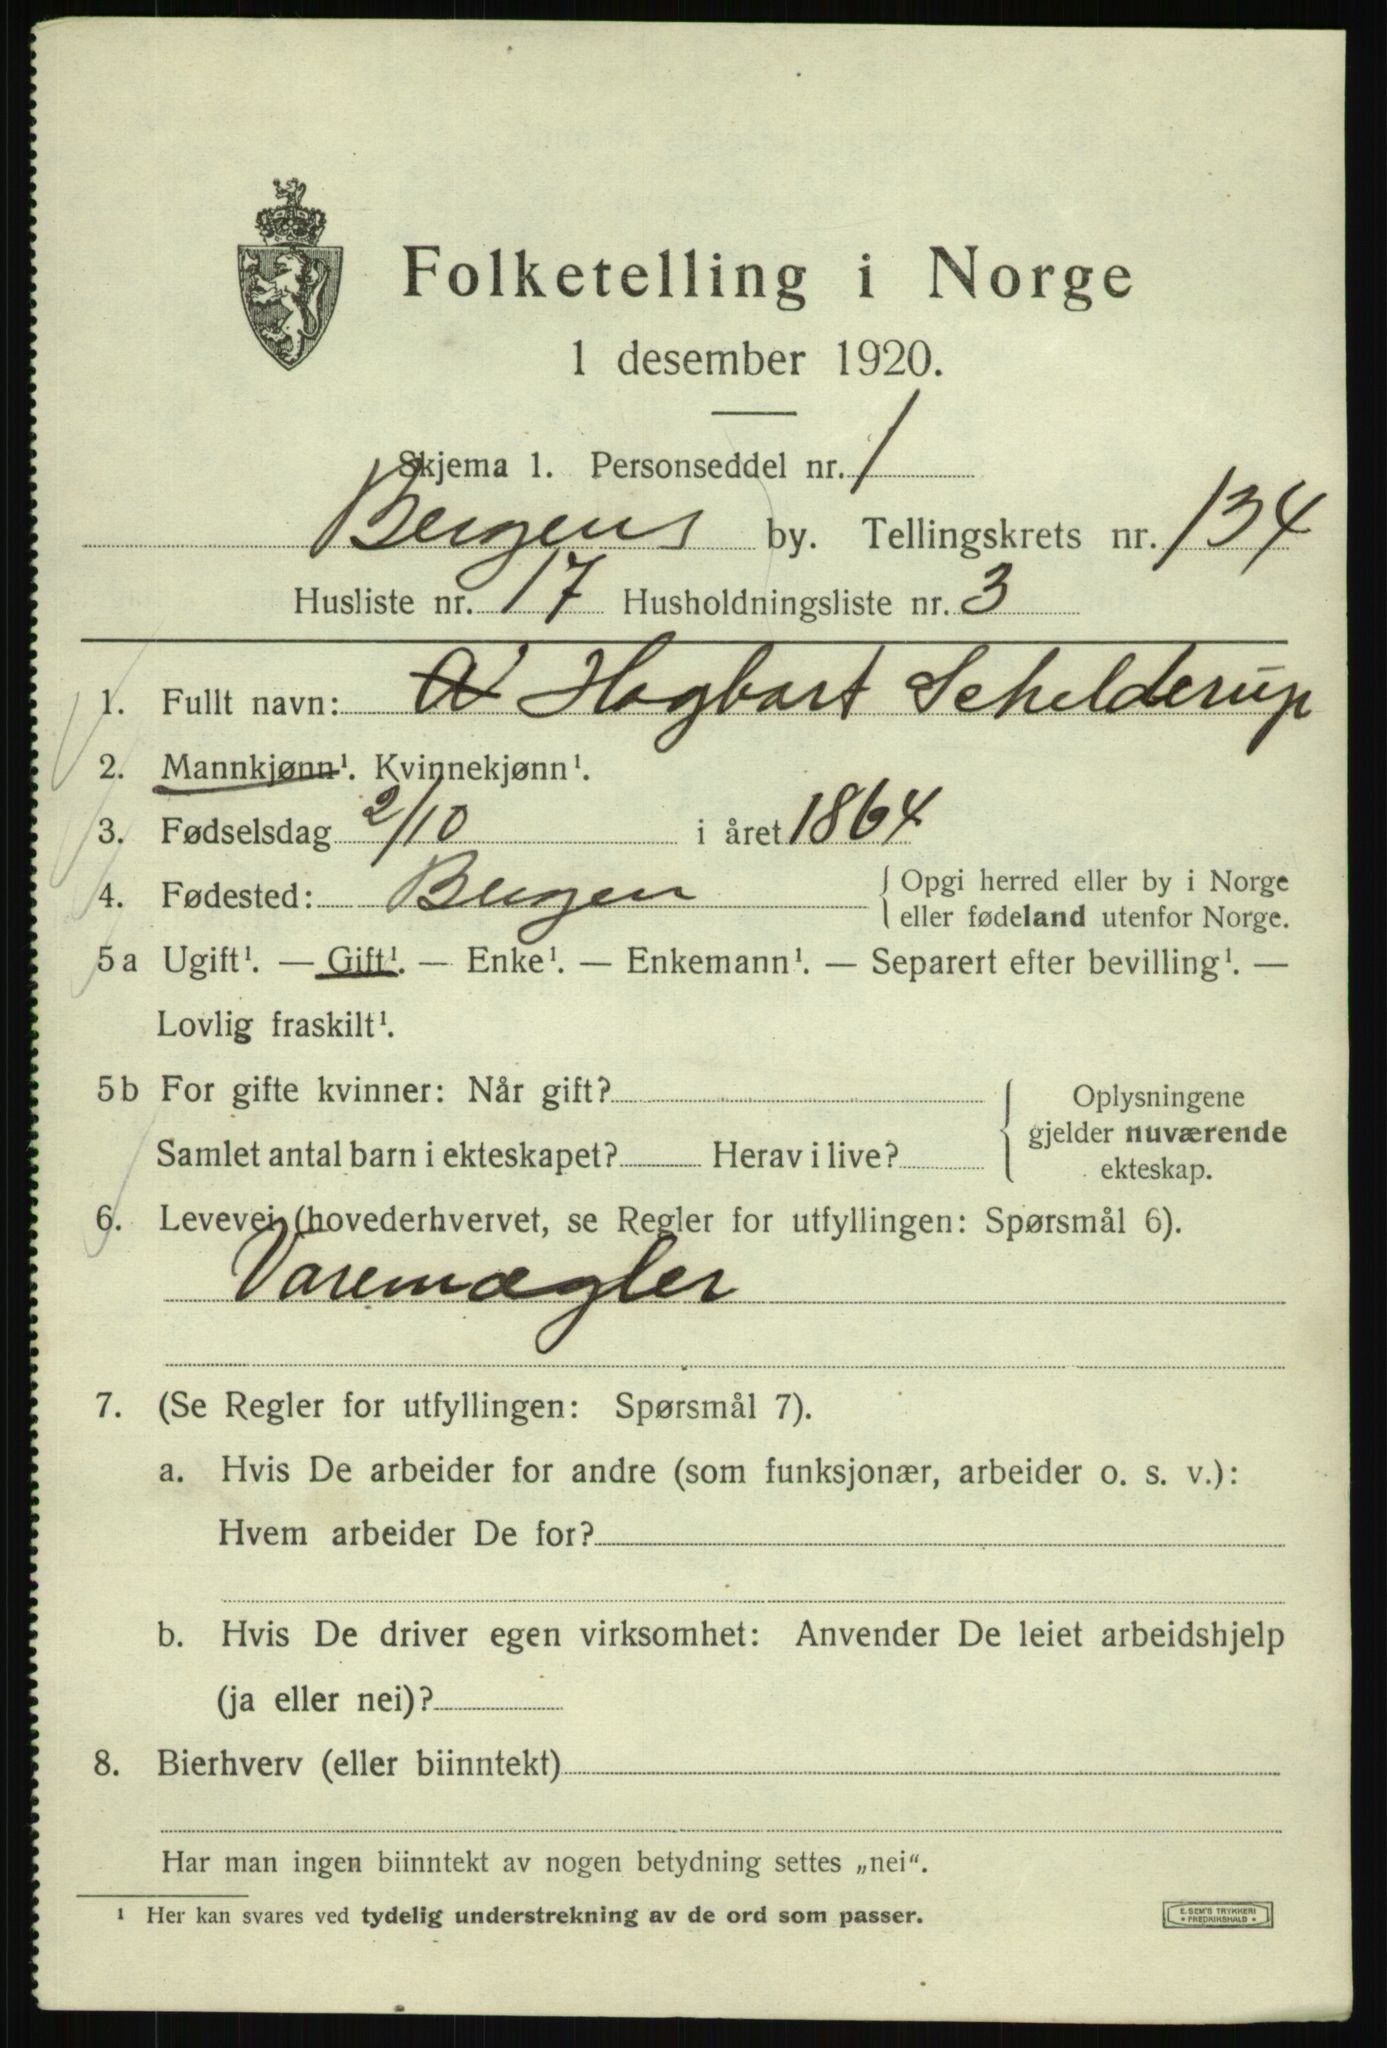 Folketelling i Norge
1 desember 1920.
Skjema 1. Personseddel nr. 1
Bergens by. Tellingskrets nr. 134
Husliste nr. 17 Husholdningsliste nr. 3
1. Fullt navn: Hagbart Schelderup
2. Mannkjønn¹. Kvinnekjønn¹.
3. Fødselsdag 2/10 i året 1864
4. Fødested: Bergen { Opgi herred eller by i Norge
eller fødeland utenfor Norge.
5a Ugift¹. — Gift¹. — Enke¹. — Enkemann¹. — Separert efter bevilling¹. —
Lovlig fraskilt¹.
5b For gifte kvinner: Når gift? { Oplysningene
gjelder nuværende
Samlet antal barn i ekteskapet? Herav i live?
ekteskap.
6. Levevei (hovederhvervet, se Regler for utfyllingen: Spørsmål 6).
Varemægler
7. (Se Regler for utfyllingen: Spørsmål 7).
a. Hvis De arbeider for andre (som funksjonær, arbeider o. s. v.):
Hvem arbeider De for?
b. Hvis De driver egen virksomhet: Anvender De leiet arbeidshjelp
(ja eller nei)?
8. Bierhverv (eller biinntekt)
Har man ingen biinntekt av nogen betydning settes „nei“.
¹ Her kan svares ved tydelig understrekning av de ord som passer.
E. SEM'S TRYKKERI
* FREDRIKSHALD *